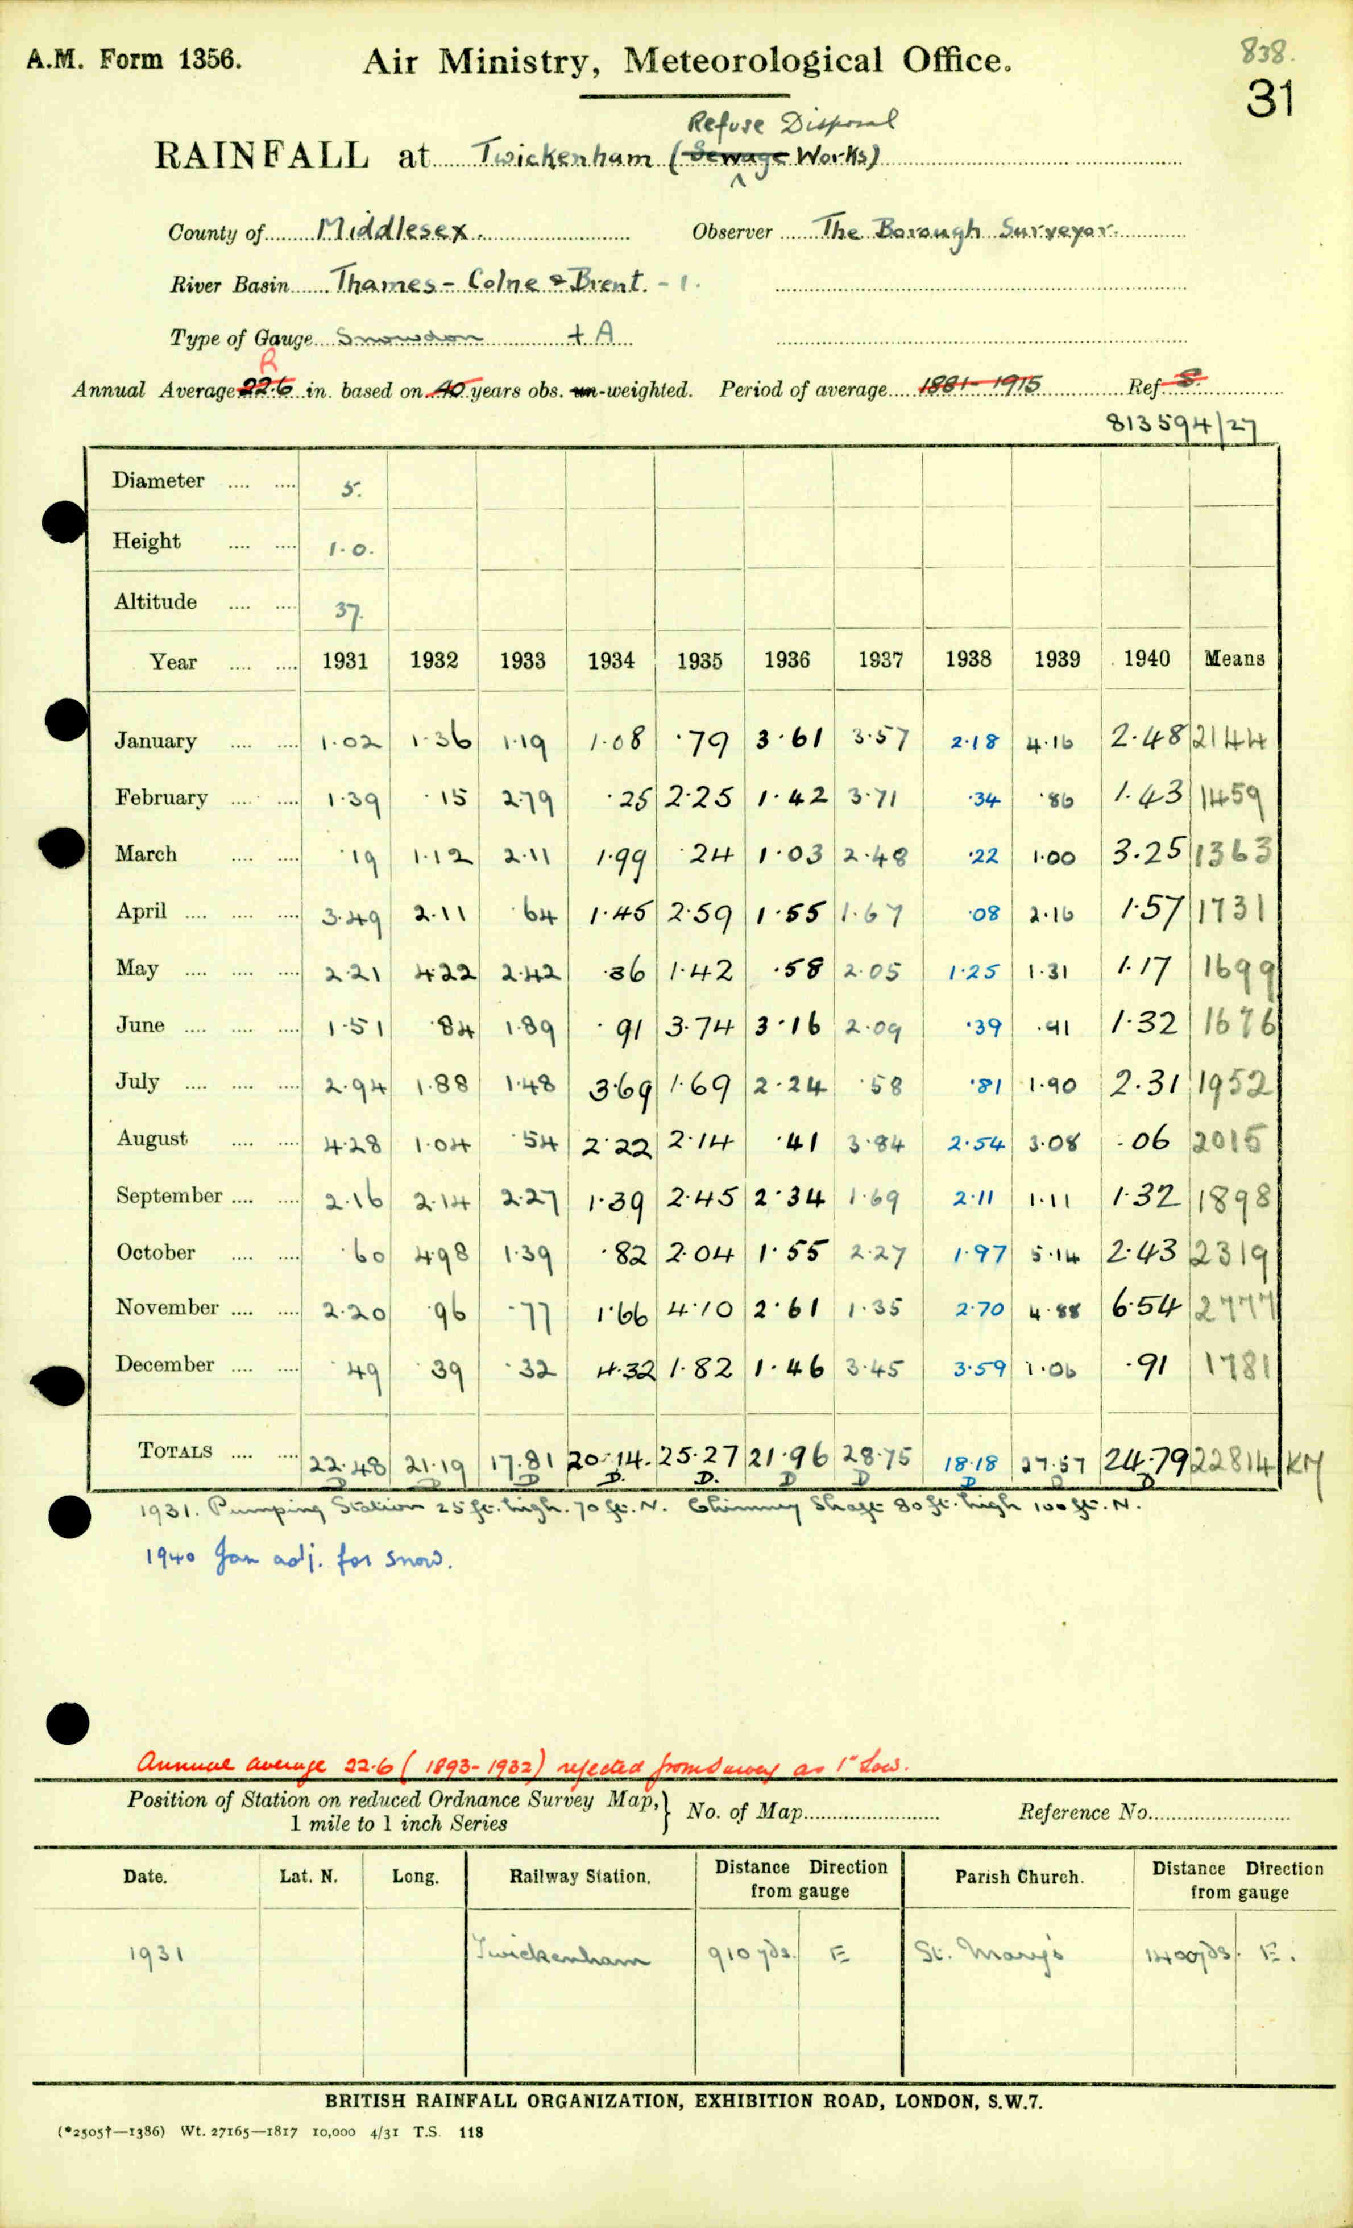 A.M. Form 1356.
Air Ministry, Meteorological Office.
838.
31
Refuse Disposal
RAINFALL at Twickenham (Sewage Works)
County of Middlesex.
Observer The Borough Surveyor.
River Basin Thames - Colne & Brent. - 1.
Type of Gauge Snowdon + A
R
Annual Average 22.6 in. based on 40 years obs. un-weighted. Period of average 1881-1915 Ref S.
813594/27
Diameter 5.
Height 1.0.
Altitude 37.
Year 1931 1932 1933 1934 1935 1936 1937 1938 1939 1940 Means
January 1.02 1.36 1.19 1.08 .79 3.61 3.57 2.18 4.16 2.48 2144
February 1.39 .15 2.79 .25 2.25 1.42 3.71 .34 .86 1.43 1459
March .19 1.12 2.11 1.99 .24 1.03 2.48 .22 1.00 3.25 1363
April 3.49 2.11 .64 1.45 2.59 1.55 1.67 .08 2.16 1.57 1731
May 2.21 4.22 2.42 .36 1.42 .58 2.05 1.25 1.31 1.17 1699
June 1.51 .84 1.89 .91 3.74 3.16 2.09 .39 .91 1.32 1676
July 2.94 1.88 1.48 3.69 1.69 2.24 .58 .81 1.90 2.31 1952
August 4.28 1.04 .54 2.22 2.14 .41 3.84 2.54 3.08 .06 2015
September 2.16 2.14 2.27 1.39 2.45 2.34 1.69 2.11 1.11 1.32 1898
October .60 4.98 1.39 .82 2.04 1.55 2.27 1.97 5.14 2.43 2319
November 2.20 .96 .77 1.66 4.10 2.61 1.35 2.70 4.88 6.54 2777
December .49 .39 .32 4.32 1.82 1.46 3.45 3.59 1.06 .91 1781
TOTALS 22.48 21.19 17.81 20.14. 25.27 21.96 28.75 18.18 27.57 24.79 22814 KM
D D D D. D. D D D D D
1931. Pumping Station 25 ft. high. 70 ft. N. Chimney Shaft 80 ft. high 100 ft. N.
1940 Jan adj. for snow.
Annual average 22.6 (1893-1932) rejected from Survey as 1" Low.
Position of Station on reduced Ordnance Survey Map,
1 mile to 1 inch Series
No. of Map
Reference No.
Date. Lat. N. Long. Railway Station. Distance Direction from gauge Parish Church. Distance Direction from gauge
1931 Twickenham 910 yds. E St. Mary's 1400 yds. E.
BRITISH RAINFALL ORGANIZATION, EXHIBITION ROAD, LONDON, S.W.7.
(*2505†—1386) Wt. 27165—1817 10,000 4/31 T.S. 118